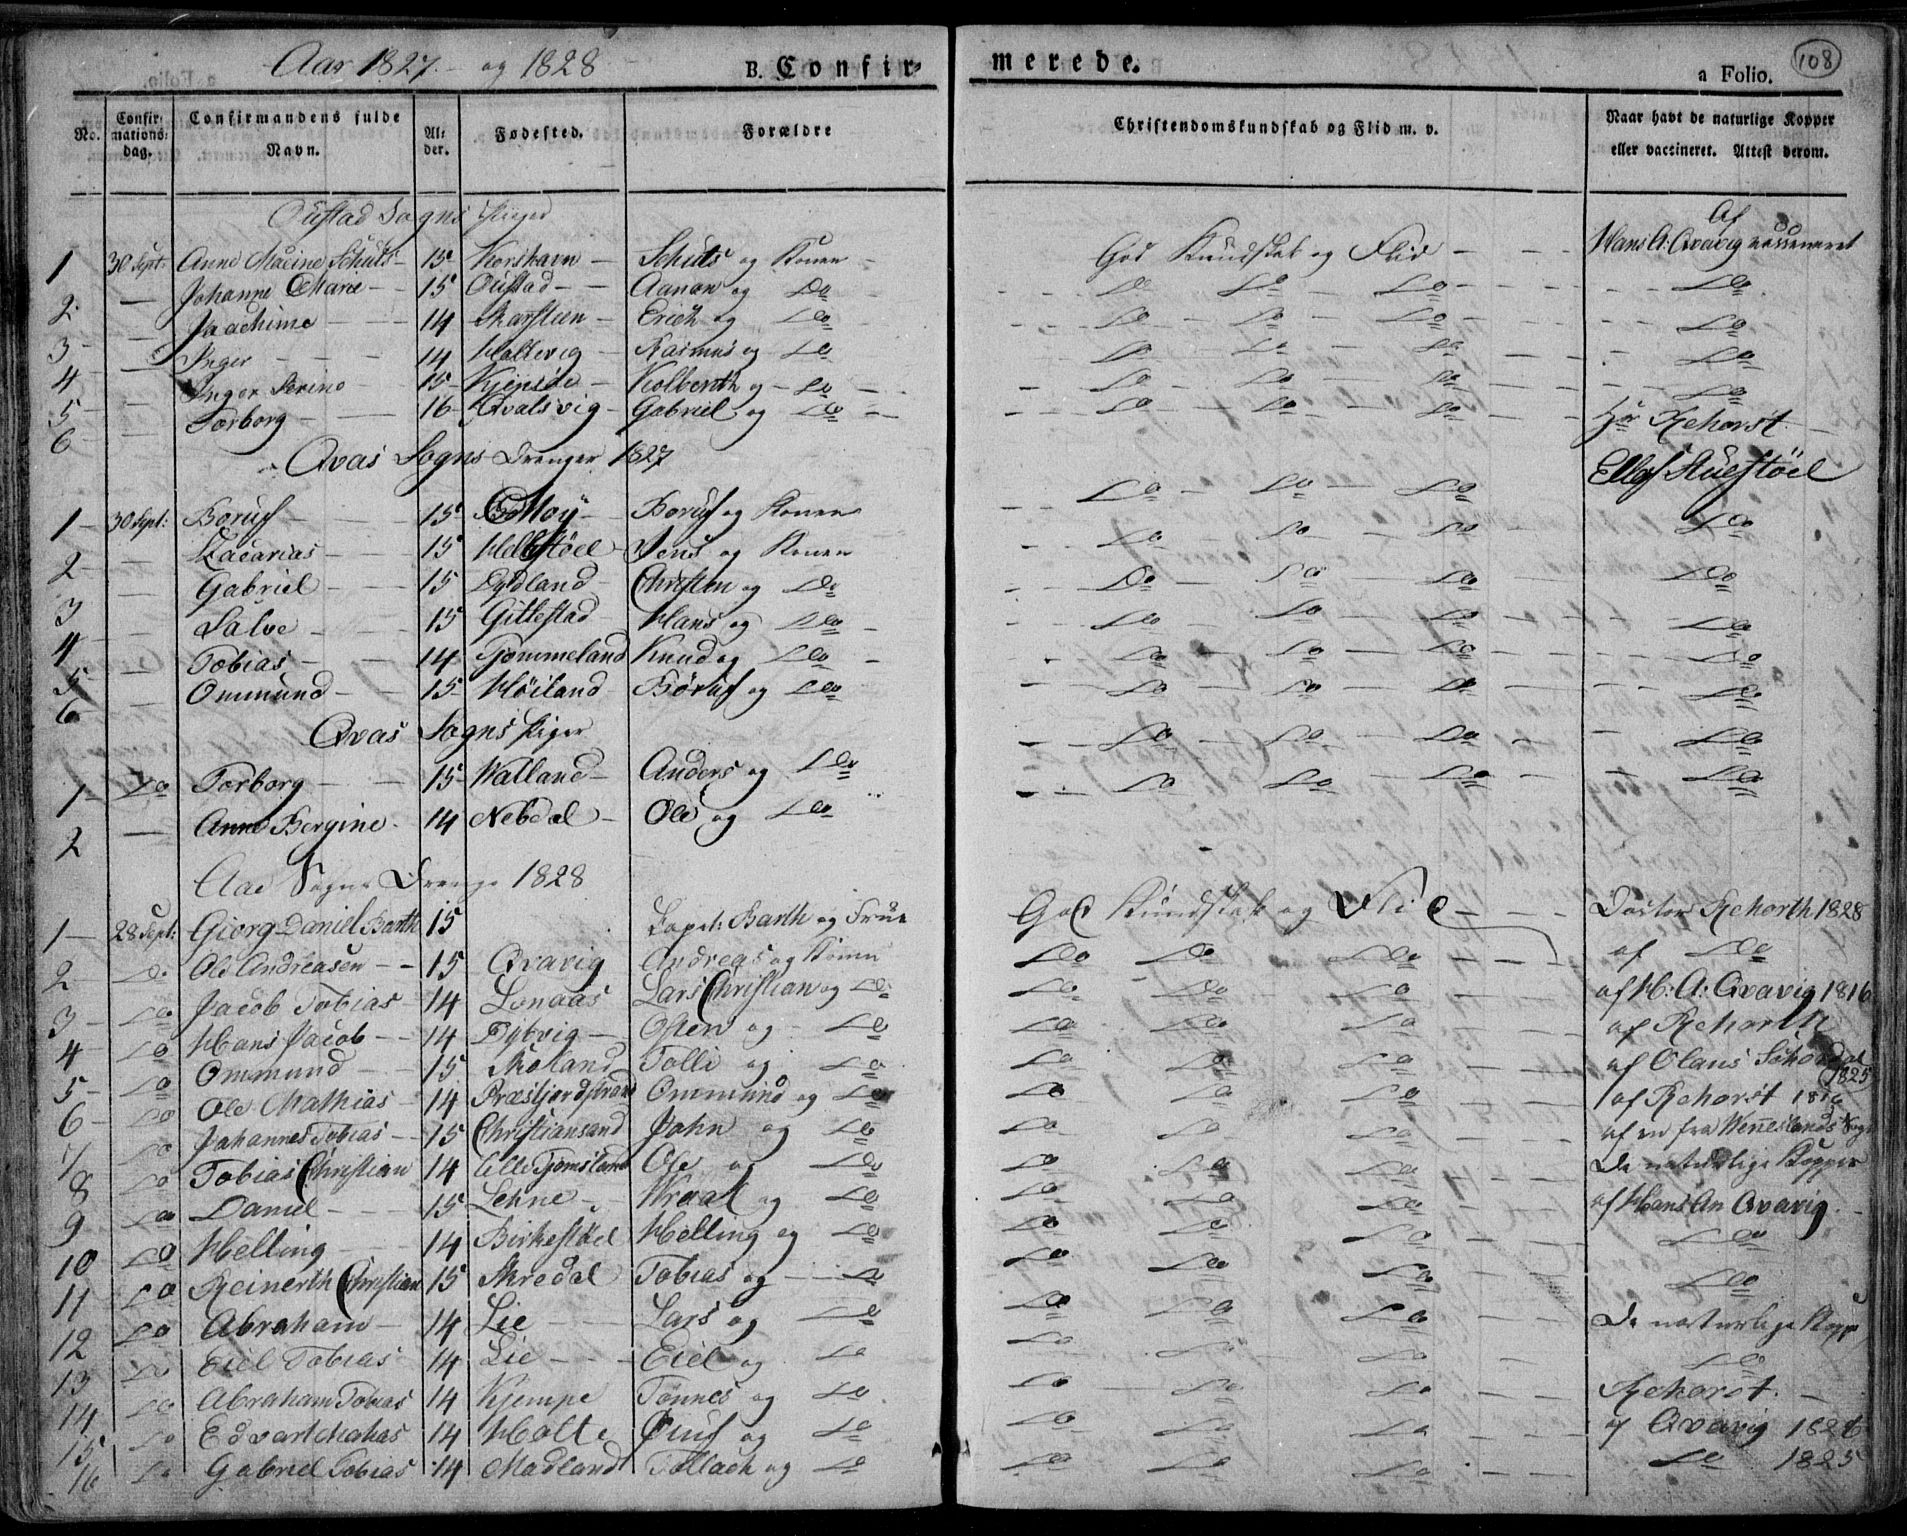 Aar 1827. og 1828 B. Confir= merede. a Folio. 108
No. Confir= mations= dag. Confirmandens fulde Navn. Al= der. Fødested. Forældre Christendomskundskab og Flid m. v. Naar havt de naturlige Kopper eller vaccineret. Attest derom.
Sogns Piger
1 30 Sept: Anne Marine Schuts 15 Korshavn Schuts og Konen God Kundskab og Flid Af Hans A: Qvavig
2 Johanne Marie 15 Aanon og Do Do Do Do Do
3 Joachime 14 Erich og Do Do Do Do Do
4 Inger 14 Holtevig Rasmus og Do Do Do Do Do
5 Inger Serine 15 og Do Do Do Do Do
6 Torborg 16 Qvalsvig Gabriel og Do Do Do Do Hr Rehorst
Qvas Sogns Drenger 1827
1 30 Sept: 15 og Konen Do Do Do
2 Zacarias 15 Jens og Konen Do Do Do Do
3 Gabriel 15 Eydland Christen og Do Do Do Do Do
4 Salve 15 Gillestad Hans og Do Do Do Do Do
5 Tobias 14 Knud og Do Do Do Do Do
6 Ommund 15 Høiland og Do Do Do Do Do
Qvas Sogns Piger
1 Do Torborg 15 Walland Anders og Do Do Do Do Do
2 Anne Bergine 14 Nebdal Ole og Do Do Do Do Do
Aae Sogns Drenge 1828
1 28 Sept: Giorg Daniel Barth 15 Capt: Barth og Frue God Kundskab og Flid Doctor Rehorth 1828
2 Do Ole Andreasen 15 Qvavig Andreas og Konen Do Do Do af Do
3 Do Jacob Tobias 14 Lonaas Lars Christian og Do Do Do Do af H: A: Qvavig 1816
4 Do Hans Jacob 14 Osten og Do Do Do Do af Rehorth
5 Do Ommund 15 Moland Tolli og Do Do Do Do af Olaus 1825
6 Do Ole Mathias 14 Ommund og Do Do Do Do af Rehorst
7 Do Johannes Tobias 15 Christiansand John og Do Do Do Do af en fra Sogn
8 Do Tobias Christian 14 Ole og Do Do Do Do De naturlige Kopper
9 Do Daniel 15 Lehne og Do Do Do Do af Hans An Qvavig
10 Do Helling 14 Birkestøel Helling og Do Do Do Do Do
11 Do Reinerth Christian 15 Skredal Tobias og Do Do Do Do Do
12 Do Abraham 14 Lie Lars og Do Do Do Do De naturlige Kopp
13 Do Eiel Tobias 14 Lie Eiel og Do Do Do Do Do
14 Do Abraham Tobias 14 Kjempe Tønnes og Do Do Do Do Rehorst
15 Do 14 Holte og Do Do Do Do af Qvavig
16 Do Gabriel Tobias 14 Madland Tollach og Do Do Do Do Do 1825